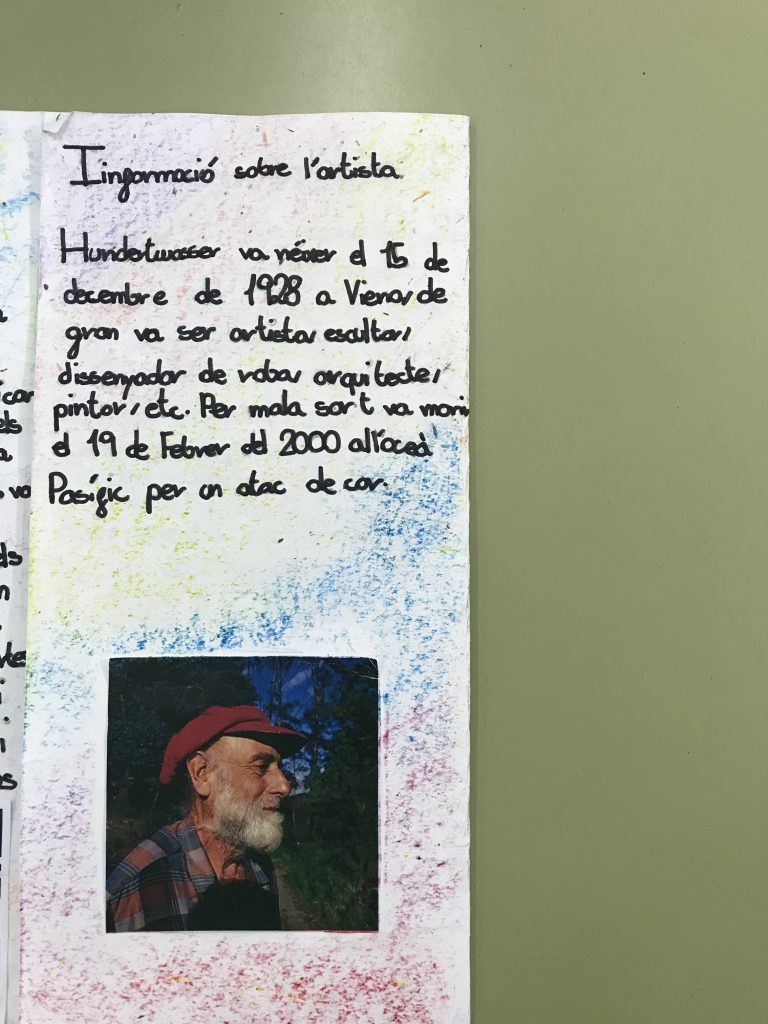 Iingormació sobre l'artista
Hundertwasser va néixer el 15 de
decembre de 1928 a Viena, de
gran va ser artista, escultor,
dissenyador de roba, arquitecte,
pintor, etc. Per mala sort va mori
el 19 de Febrer del 2000 al l'oceà
Pasígic per un atac de cor.
icar
els
a
va
els
n
i